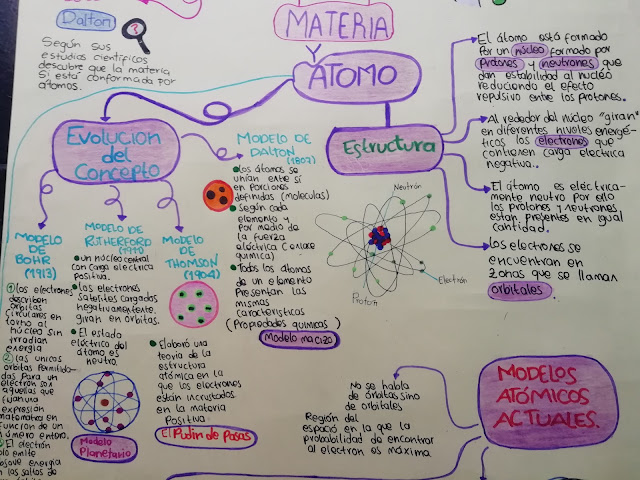 MATERIA
Y
ÁTOMO
Dalton
Según sus
estudios científicos
descubre que la materia
Si está conformada por
átomos.
Evolución
del
Concepto
MODELO DE
DALTON
(1807)
• los átomos se
unían entre sí
en porciones
definidas (moleculas)
• Según cada
elemento y
por medio de
la fuerza
eléctrica (enlace
química)
• Todos los átomos
de un elemento
Presentan las
mismas
características
(Propiedades químicas)
Modelo macizo
MODELO
DE
BOHR
(1913)
① los electrones
describen
órbitas
circulares en
torno al
núcleo sin
irradian
energía
② las unicas
orbitas permitid-
das para un
electrón son
aquellas que
expresión
matematica en
función de un
número entero.
El electrón
solo emite
energía
los saltos de
MODELO DE
RUTHERFORD
(1911)
• un núcleo central
con carga electrica
positiva.
• los electrones
satelites cargados
negativamente
giran en orbitas.
• El estado
eléctrico del
átomo es
neutro.
Modelo
Planetario
MODELO
DE
THOMSON
(1904)
• Elaboró una
teoría de la
estructura
atómica en la
que los electrones
están incrustados
en la materia
Positiva
El Pudin de Pasas
Estructura
El átomo está formado
Por un núcleo formado por
protones y neutrones que
dan estabilidad al núcleo
reduciendo el efecto
repulsivo entre los protones.
Al rededor del núcleo "giran"
en diferentes niveles energé-
ticos los electrones que
contienen carga electrica
negativa.
El átomo es eléctrica-
mente neutro por ello
los protones y neutrones
estan presentes en igual
cantidad.
los electrones se
encuentran en
zonas que se llaman
orbitales.
Neutrón
Electrón
Protón
MODELOS
ATÓMICOS
ACTUALES.
No se habla
de órbitas sino
de orbitales
Región del
espacio en la que la
probabilidad de encontrar
al electron es máxima.